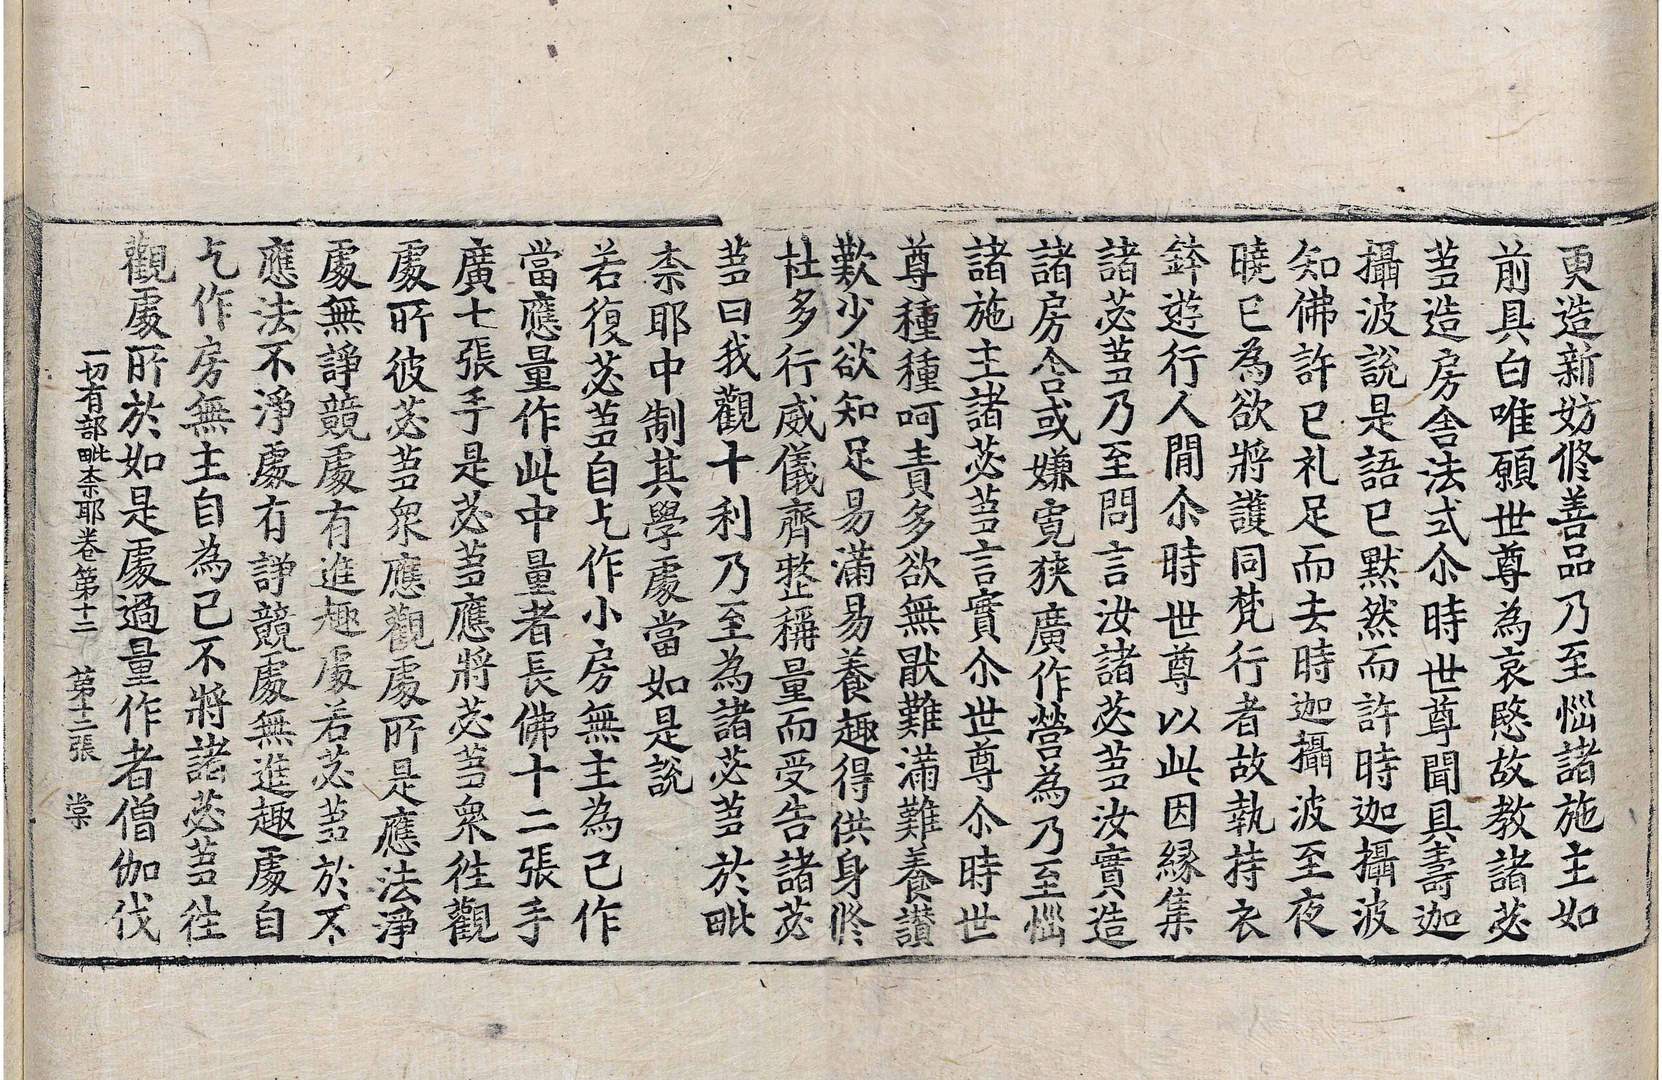 更造新妨修善品乃至惱諸施主如
前具白唯願世尊為哀愍故教諸苾
芻造房舍法式尒時世尊聞具壽迦
攝波說是語已默然而許時迦攝波
知佛許已礼足而去時迦攝波至夜
曉已為欲將護同梵行者故執持衣
鉢遊行人間尒時世尊以此因緣集
諸苾芻乃至問言汝諸苾芻汝實造
諸房舍或嫌寬狹廣作營為乃至惱
諸施主諸苾芻言實尒世尊尒時世
尊種種呵責多欲無猒難滿難養讃
歎少欲知足易滿易養趣得供身修
杜多行威儀齊整稱量而受告諸苾
芻曰我觀十利乃至為諸苾芻於毗
柰耶中制其學處當如是說
若復苾芻自乞作小房無主為己作
當應量作此中量者長佛十二張手
廣七張手是苾芻應將苾芻衆往觀
處所彼苾芻衆應觀處所是應法淨
處無諍競處有進趣處若苾芻於不
應法不淨處有諍競處無進趣處自
乞作房無主自為己不將諸苾芻往
觀處所於如是處過量作者僧伽伐
一切有部毗柰耶卷第十二 第十二張 棠